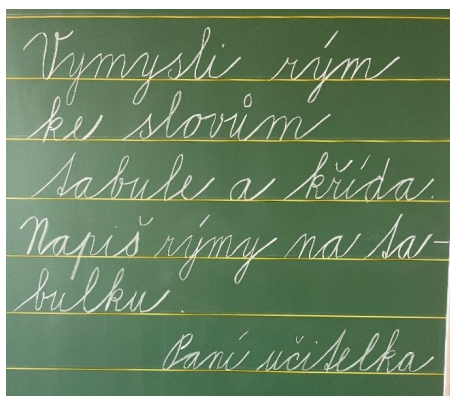 Vymysli rým
ke slovům
tabule a křída.
Napiš rýmy na ta-
bulku.
Paní učitelka